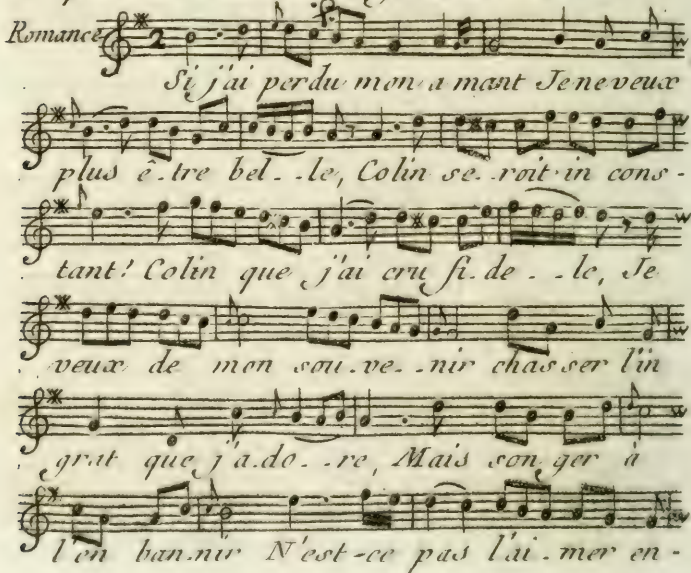 Romance
Si j'ai perdu mon a mant Je ne veux
plus ê.tre bel..le, Colin se..roit in cons-
tant! Colin que j'ai cru fi.de..le, Je
veux de mon sou.ve..nir chasser l'in
grat que j'a.do..re, Mais son ger à
l'en ban.nir N'est-ce pas l'ai.mer en-